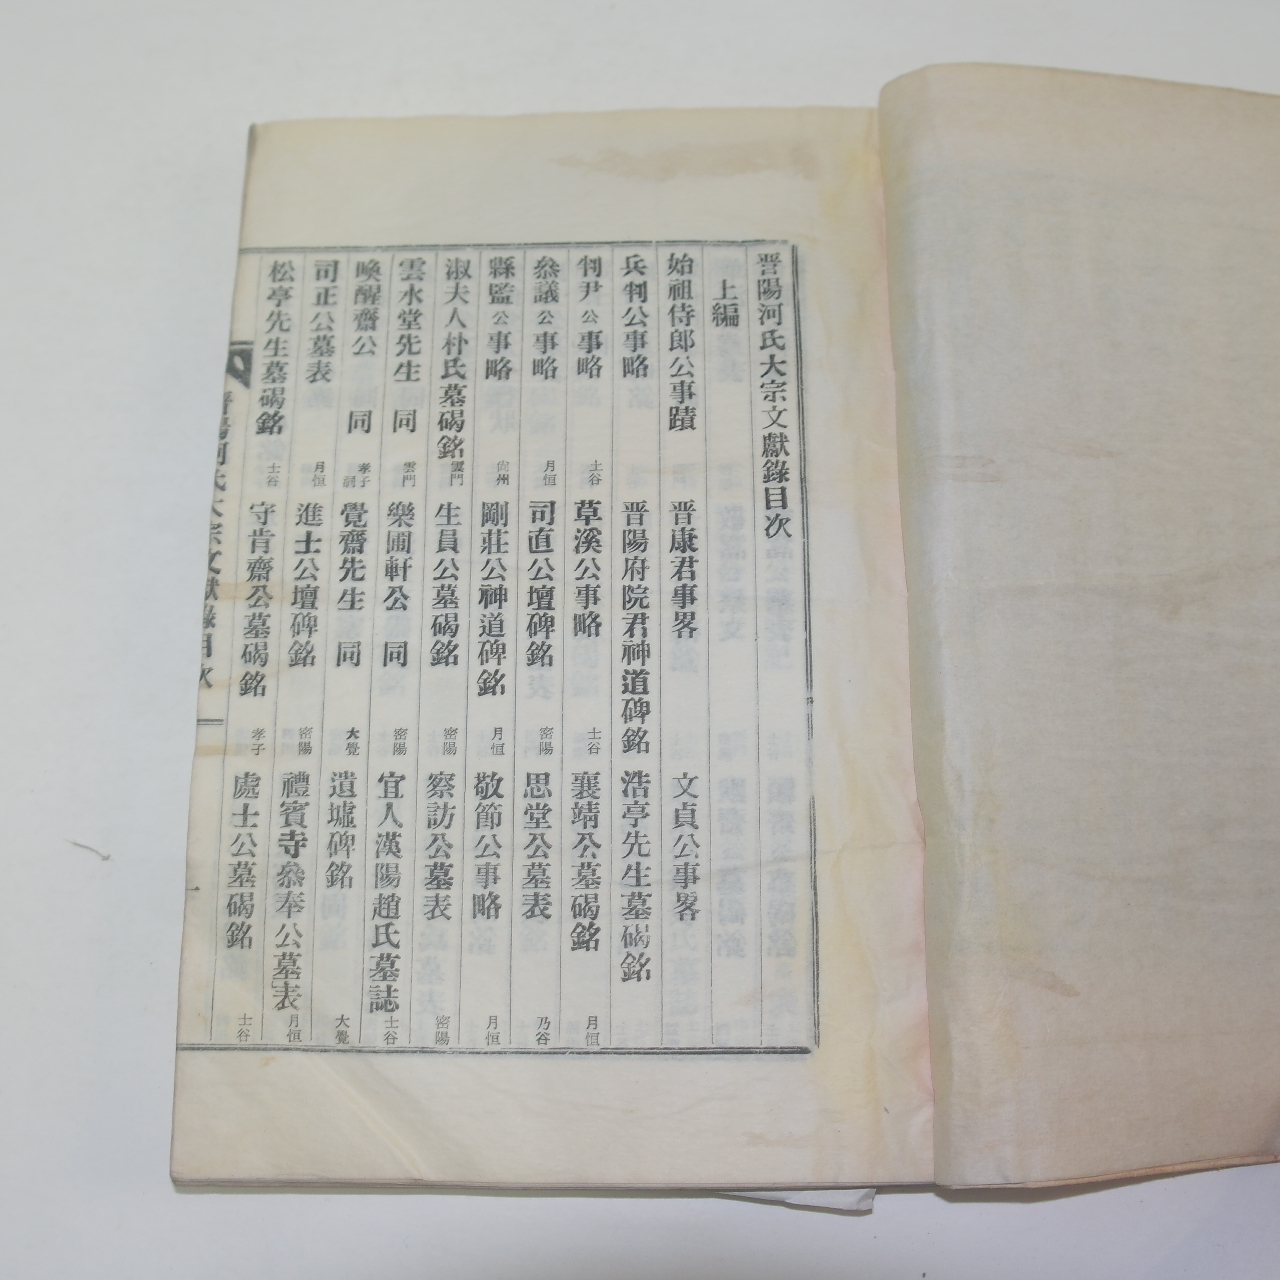 晋陽河氏大宗文獻錄目次
上編
始祖侍郎公事蹟 晋康君事畧 文貞公事畧
兵判公事略 晋陽府院君神道碑銘 浩亭先生墓碣銘
判尹公事略 士谷 草溪公事略 士谷 襄靖公墓碣銘 月恒
叅議公事略 月恒 司直公壇碑銘 密陽 思堂公墓表 乃谷
縣監公事略 尙州 剛莊公神道碑銘 月恒 敬節公事略 月恒
淑夫人朴氏墓碣銘 雲門 生員公墓碣銘 密陽 察訪公墓表 密陽
雲水堂先生 同 雲門 樂圃軒公 同 密陽 宜人漢陽趙氏墓誌 士谷
喚醒齋公 同 孝子 覺齋先生 同 大覺 遺墟碑銘 大覺
司正公墓表 月恒 進士公壇碑銘 密陽 禮賓寺叅奉公墓表 月恒
松亭先生墓碣銘 士谷 守肯齋公墓碣銘 孝子 處士公墓碣銘 士谷
晋陽河氏大宗文獻錄目次 一